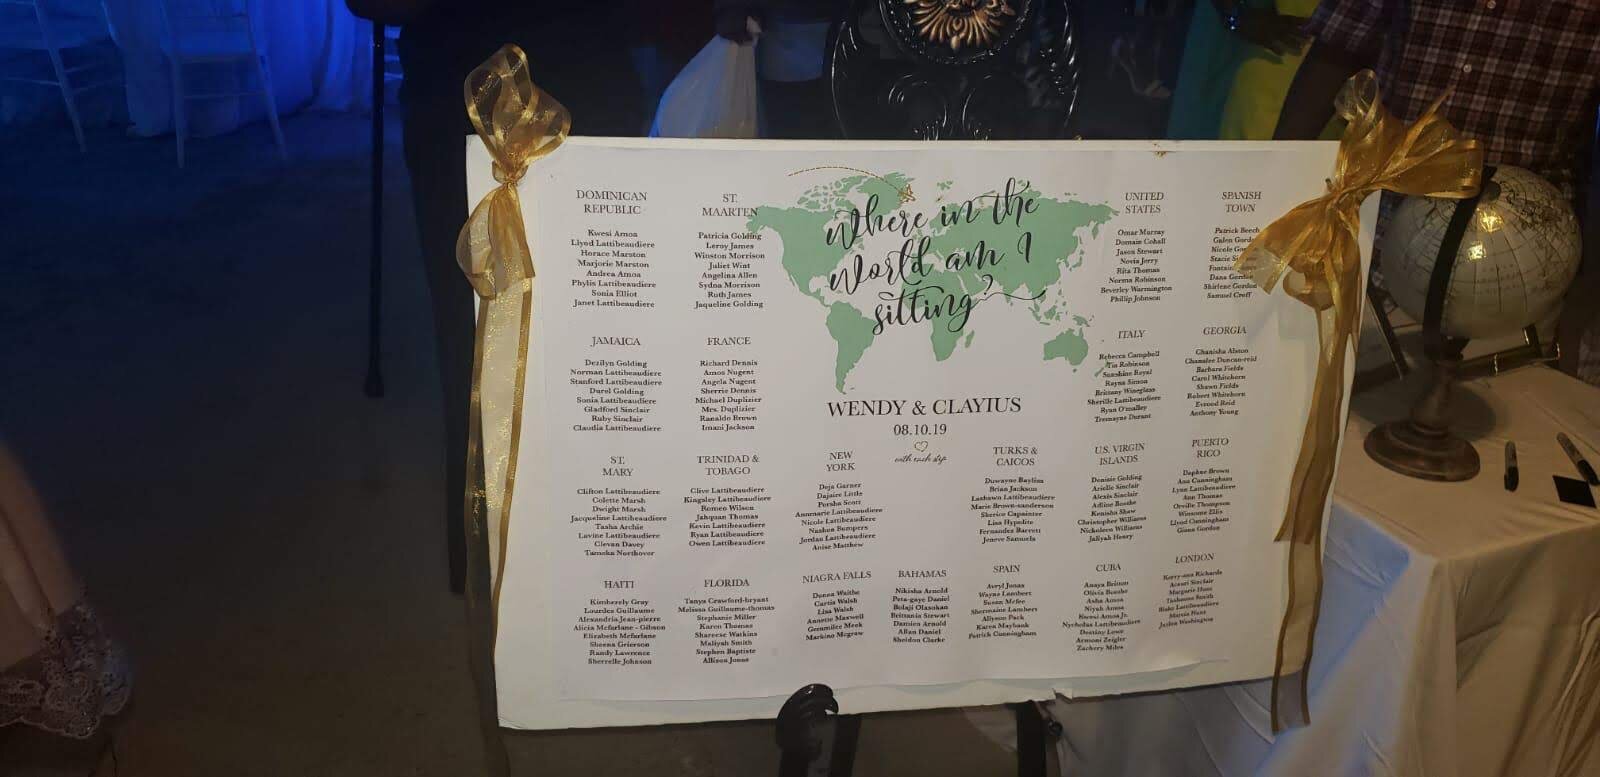 DOMINICAN
REPUBLIC
Kwesi Amoa
Llyod Lattibeaudiere
Horace Marston
Marjorie Marston
Andrea Amoa
Phylis Lattibeaudiere
Sonia Elliot
Janet Lattibeaudiere
ST.
MAARTEN
Patricia Golding
Leroy James
Winston Morrison
Juliet Wint
Angelina Allen
Sydna Morrison
Ruth James
Jaqueline Golding
where in the
world am I
sitting?
UNITED
STATES
Omar Murray
Domain Cohall
Jason Stewart
Novia Jerry
Rita Thomas
Norma Robinson
Beverley Warmington
Phillip Johnson
SPANISH
TOWN
Patrick Beech
Galen
Nicole
Stacie
Dana Gordon
Shirlene Gordon
Samuel Croff
JAMAICA
Dezilyn Golding
Norman Lattibeaudiere
Stanford Lattibeaudiere
Durel Golding
Sonia Lattibeaudiere
Gladford Sinclair
Ruby Sinclair
Claudia Lattibeaudiere
FRANCE
Richard Dennis
Amos Nugent
Angela Nugent
Sherrie Dennis
Michael Duplizier
Mrs. Duplizier
Ranaldo Brown
Imani Jackson
WENDY & CLAYIUS
08.10.19
with each step
ITALY
Rebecca Campbell
Tia Robinson
Sunshine Royal
Rayna Simon
Brittany Wineglass
Sherille Lattibeaudiere
Ryan O'malley
Tremayne Durant
GEORGIA
Ghanisha Alston
Chamalee Duncan-reid
Barbara Fields
Carol Whitehorn
Shawn Fields
Robert Whitehorn
Evrood Reid
Anthony Young
ST.
MARY
Clifton Lattibeaudiere
Colette Marsh
Dwight Marsh
Jacqueline Lattibeaudiere
Tasha Archie
Lavine Lattibeaudiere
Clevan Davey
Tameka Northover
TRINIDAD &
TOBAGO
Clive Lattibeaudiere
Kingsley Lattibeaudiere
Romeo Wilson
Jahquan Thomas
Kevin Lattibeaudiere
Ryan Lattibeaudiere
Owen Lattibeaudiere
NEW
YORK
Deja Garner
Dajaire Little
Porsha Scott
Annmarie Lattibeaudiere
Nicole Lattibeaudiere
Nashon Bumpers
Jordan Lattibeaudiere
Anise Matthew
TURKS &
CAICOS
Duwayne Bayliss
Brian Jackson
Lashawn Lattibeaudiere
Marie Brown-sanderson
Sherice Capainter
Lisa Hypolite
Fernandez Barrett
Jeneve Samuels
U.S. VIRGIN
ISLANDS
Denisie Golding
Arielle Sinclair
Alexis Sinclair
Adline Boothe
Kenisha Shaw
Christopher Williams
Nickoleen Williams
Jaliyah Henry
PUERTO
RICO
Daphne Brown
Ann Cunningham
Lynn Lattibeaudiere
Ann Thomas
Orville Thompson
Winsome Ellis
Llyod Cunningham
Glenn Gordon
HAITI
Kimberely Gray
Lourdes Guillaume
Alexandria Jean-pierre
Alicia Mcfarlane - Gibson
Elizabeth Mcfarlane
Sheena Grierson
Randy Lawrence
Sherrelle Johnson
FLORIDA
Tanya Crawford-bryant
Melissa Guillaume-thomas
Stephanie Miller
Karen Thomas
Shareese Watkins
Maliyah Smith
Stephen Baptiste
Allison Jonas
NIAGRA FALLS
Donna Waithe
Curtis Walsh
Lisa Walsh
Annette Maxwell
Geronilee Meek
Markino Mcgraw
BAHAMAS
Nikisha Arnold
Peta-gaye Daniel
Bolaji Olasokan
Brittania Stewart
Damien Arnold
Allan Daniel
Sheldon Clarke
SPAIN
Avryl Jonas
Wayne Lambert
Susan Mcfee
Shermaine Lambert
Allyson Pack
Karen Maybank
Patrick Cunningham
CUBA
Anaya Britton
Olivia Boothe
Asha Amoa
Niyah Amoa
Kwesi Amoa Jr.
Nycholas Lattibeaudiere
Destiny Lowe
Armoni Zeigler
Zachery Miles
LONDON
Kerry-ann Richards
Acauri Sinclair
Margarie Hunt
Tashauna Smith
Blake Lattibeaudiere
Marcia Hunt
Jaslen Washington